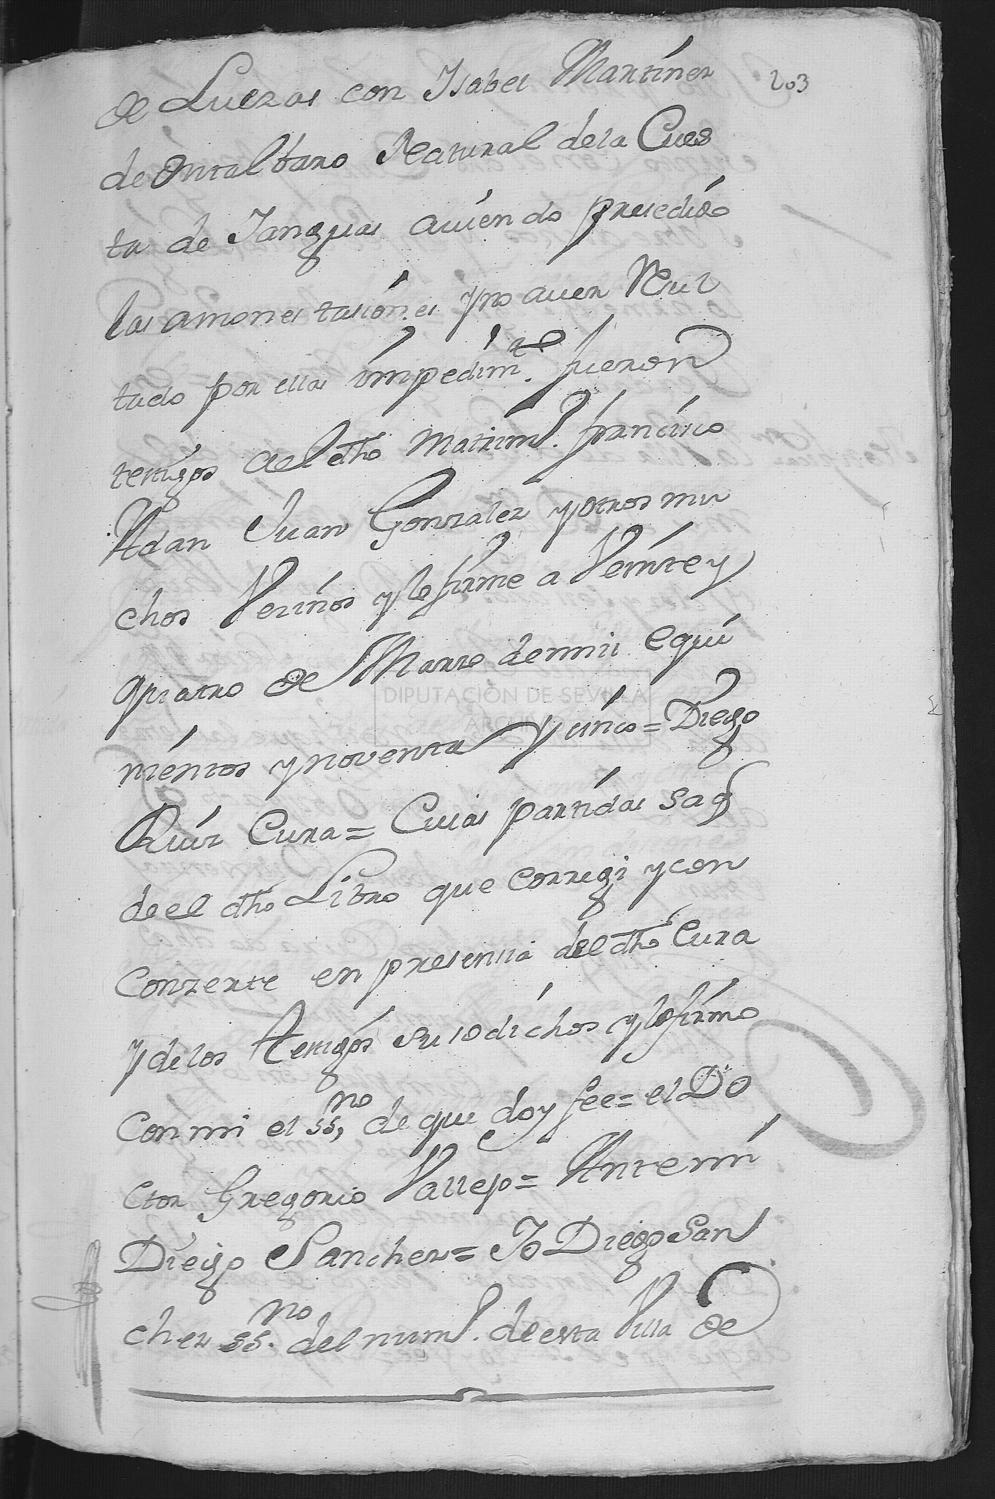 203
de Luezas con Ysabel Martinez
de ontalbaro Natural dela Cues
ta de Tanguas auiendo presedido
las amonestasiones yno auer Resul
tado por ellas impedimto. fueron
testigos del dho Matriml. francisco
Adan Juan Gonzalez yotros mu
chos Vezinos ylo firme a Veinte y
quatro de Marzo demil e qui
nientos ynoventa Y cinco = Diego
Ruiz Cura = Cuias partidas saq
deel dho Libro que corregi ycon
Conzerte en presensia del dho Cura
y delos testigos susodichos ylofirmo
Con mi el ssno, de que doy fee = el Do
ctor Gregorio Vallejo = Antemi
Diego Sanchez = Yo Diego San
chez ssno. del numl. de esta Villa de
DIPUTACIÓN DE SEVILLA